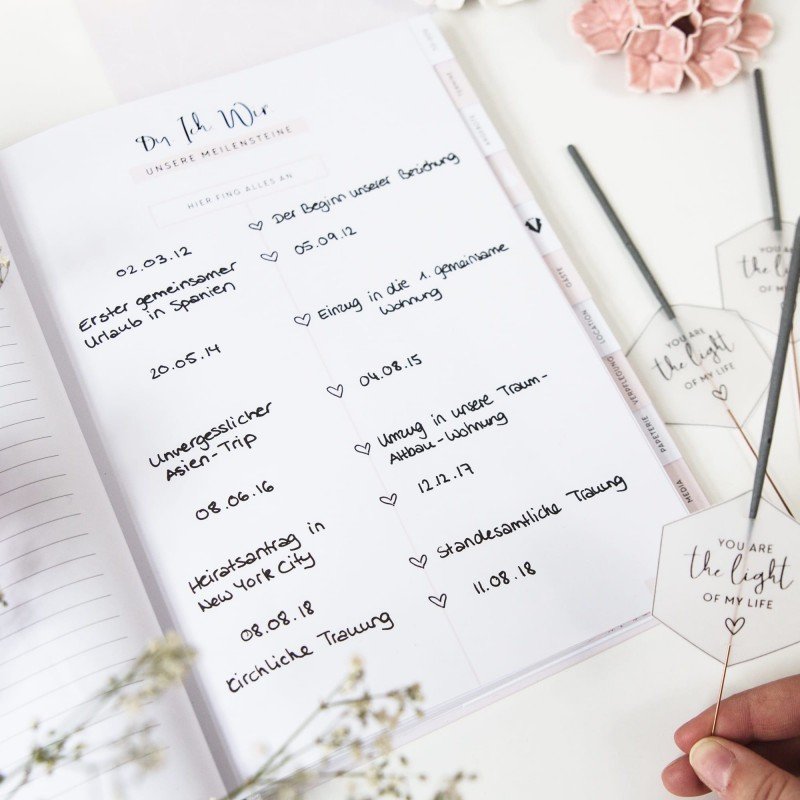 Du Ich Wir
UNSERE MEILENSTEINE
HIER FING ALLES AN
Der Beginn unserer Beziehung
02.03.12
05.09.12
Erster gemeinsamer
Urlaub in Spanien
Einzug in die 1. gemeinsame
Wohnung
20.05.14
04.08.15
Unvergesslicher
Asien-Trip
Umzug in unsere Traum-
Altbau-Wohnung
08.06.16
12.12.17
Heiratsantrag in
New York City
Standesamtliche Trauung
08.08.18
11.08.18
Kirchliche Trauung
TERMINE
ANGEBOTE
GÄSTE
LOCATION
VERPFLEGUNG
PAPETERIE
MEDIA
YOU
the
OF
YOU ARE
the light
OF MY LIFE
YOU ARE
the light
OF MY LIFE